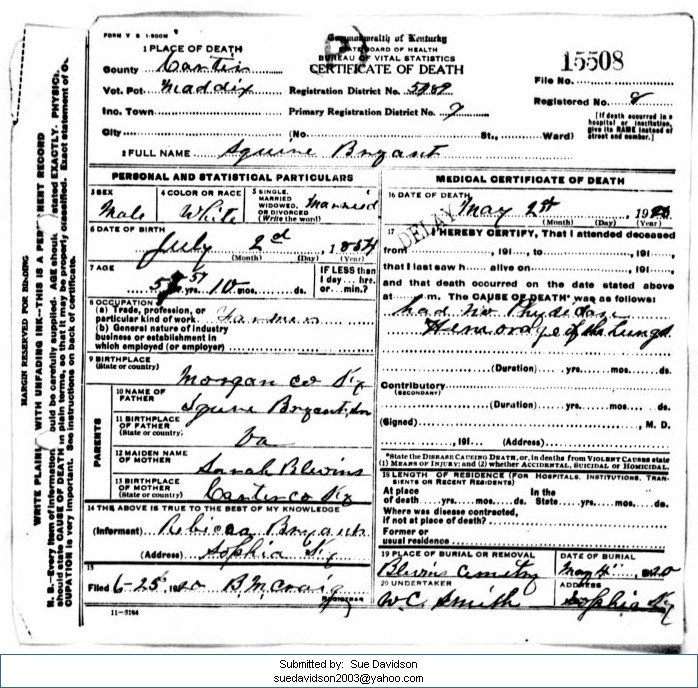 FORM V S 1-500M
Commonwealth of Kentucky
STATE BOARD OF HEALTH
BUREAU OF VITAL STATISTICS
CERTIFICATE OF DEATH
15508
1 PLACE OF DEATH
County Carter
Vot. Pct. Maddix
Registration District No. 5989
File No.
Inc. Town
Primary Registration District No. 7
Registered No. 8
City
(No. St., Ward)
[If death occurred in a hospital or institution, give its NAME instead of street and number.]
2 FULL NAME Squire Bryant
PERSONAL AND STATISTICAL PARTICULARS
3 SEX
Male
4 COLOR OR RACE
White
5 SINGLE, MARRIED WIDOWED, OR DIVORCED (Write the word)
Married
6 DATE OF BIRTH
July 2d, 1854
(Month) (Day) (Year)
7 AGE
yrs. 10 mos. ds.
IF LESS than 1 day... hrs. or... min.?
8 OCCUPATION
(a) Trade, profession, or particular kind of work Farmer
(b) General nature of industry business or establishment in which employed (or employer)
9 BIRTHPLACE
(State or country)
Morgan co Ky
PARENTS
10 NAME OF FATHER
Squire Bryant Sr
11 BIRTHPLACE OF FATHER
(State or country)
Va
12 MAIDEN NAME OF MOTHER
Sarah Blevins
13 BIRTHPLACE OF MOTHER
(State or country)
Carter co Ky
14 THE ABOVE IS TRUE TO THE BEST OF MY KNOWLEDGE
(Informant) Rebicca Bryant
(Address) Sophia Ky
15
Filed 6-25 1920 B McCraig
REGISTRAR
11-3184
MEDICAL CERTIFICATE OF DEATH
16 DATE OF DEATH
May 2d, 19
(Month) (Day) (Year)
DELAY
17 I HEREBY CERTIFY, That I attended deceased
from , 191 , to , 191 ,
that I last saw h alive on , 191 ,
and that death occurred on the date stated above
at m. The CAUSE OF DEATH* was as follows:
had no Physician
Hemordge of the Lungs
(Duration) yrs. mos. ds.
Contributory
(SECONDARY)
(Duration) yrs. mos. ds.
(Signed) , M. D.
, 191 (Address)
*State the DISEASE CAUSING DEATH, or, in deaths from VIOLENT CAUSES state (1) MEANS OF INJURY; and (2) whether ACCIDENTAL, SUICIDAL or HOMICIDAL.
18 LENGTH OF RESIDENCE (FOR HOSPITALS, INSTITUTIONS, TRANSIENTS OR RECENT RESIDENTS)
At place of death yrs. mos. ds. In the State yrs. mos. ds.
Where was disease contracted,
if not at place of death?
Former or
usual residence
19 PLACE OF BURIAL OR REMOVAL
Blevins Cemetry
DATE OF BURIAL
May 4, 1920
20 UNDERTAKER
W.C. Smith
ADDRESS
Sophia Ky
MARGIN RESERVED FOR BINDING
WRITE PLAINLY WITH UNFADING INK—THIS IS A PERMANENT RECORD
N. B.—Every item of information should be carefully supplied. AGE should be stated EXACTLY. PHYSICI
should state CAUSE OF DEATH in plain terms, so that it may be properly classified. Exact statement of OC
CUPATION is very important. See instructions on back of certificate.
Submitted by: Sue Davidson
suedavidson2003@yahoo.com